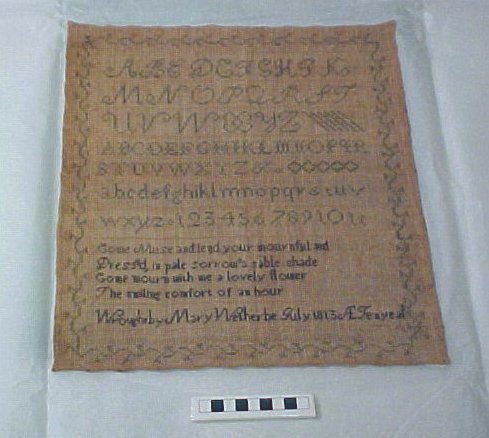 ABCDEFGHIK
MNOPQRST
UVWXYZ
ABCDEFGHIKLMNOPQR
STUVWXYZ&
abcdefghiklmnopqrstuv
wxyz 1234567891011
Come Muse and lend your mournful aid
Dress'd in pale sorrow's sable shade
Come mourn with me a lovely flower
The smiling comfort of an hour
Wrought by Mary Wetherbe July 1813 Æ Ten years